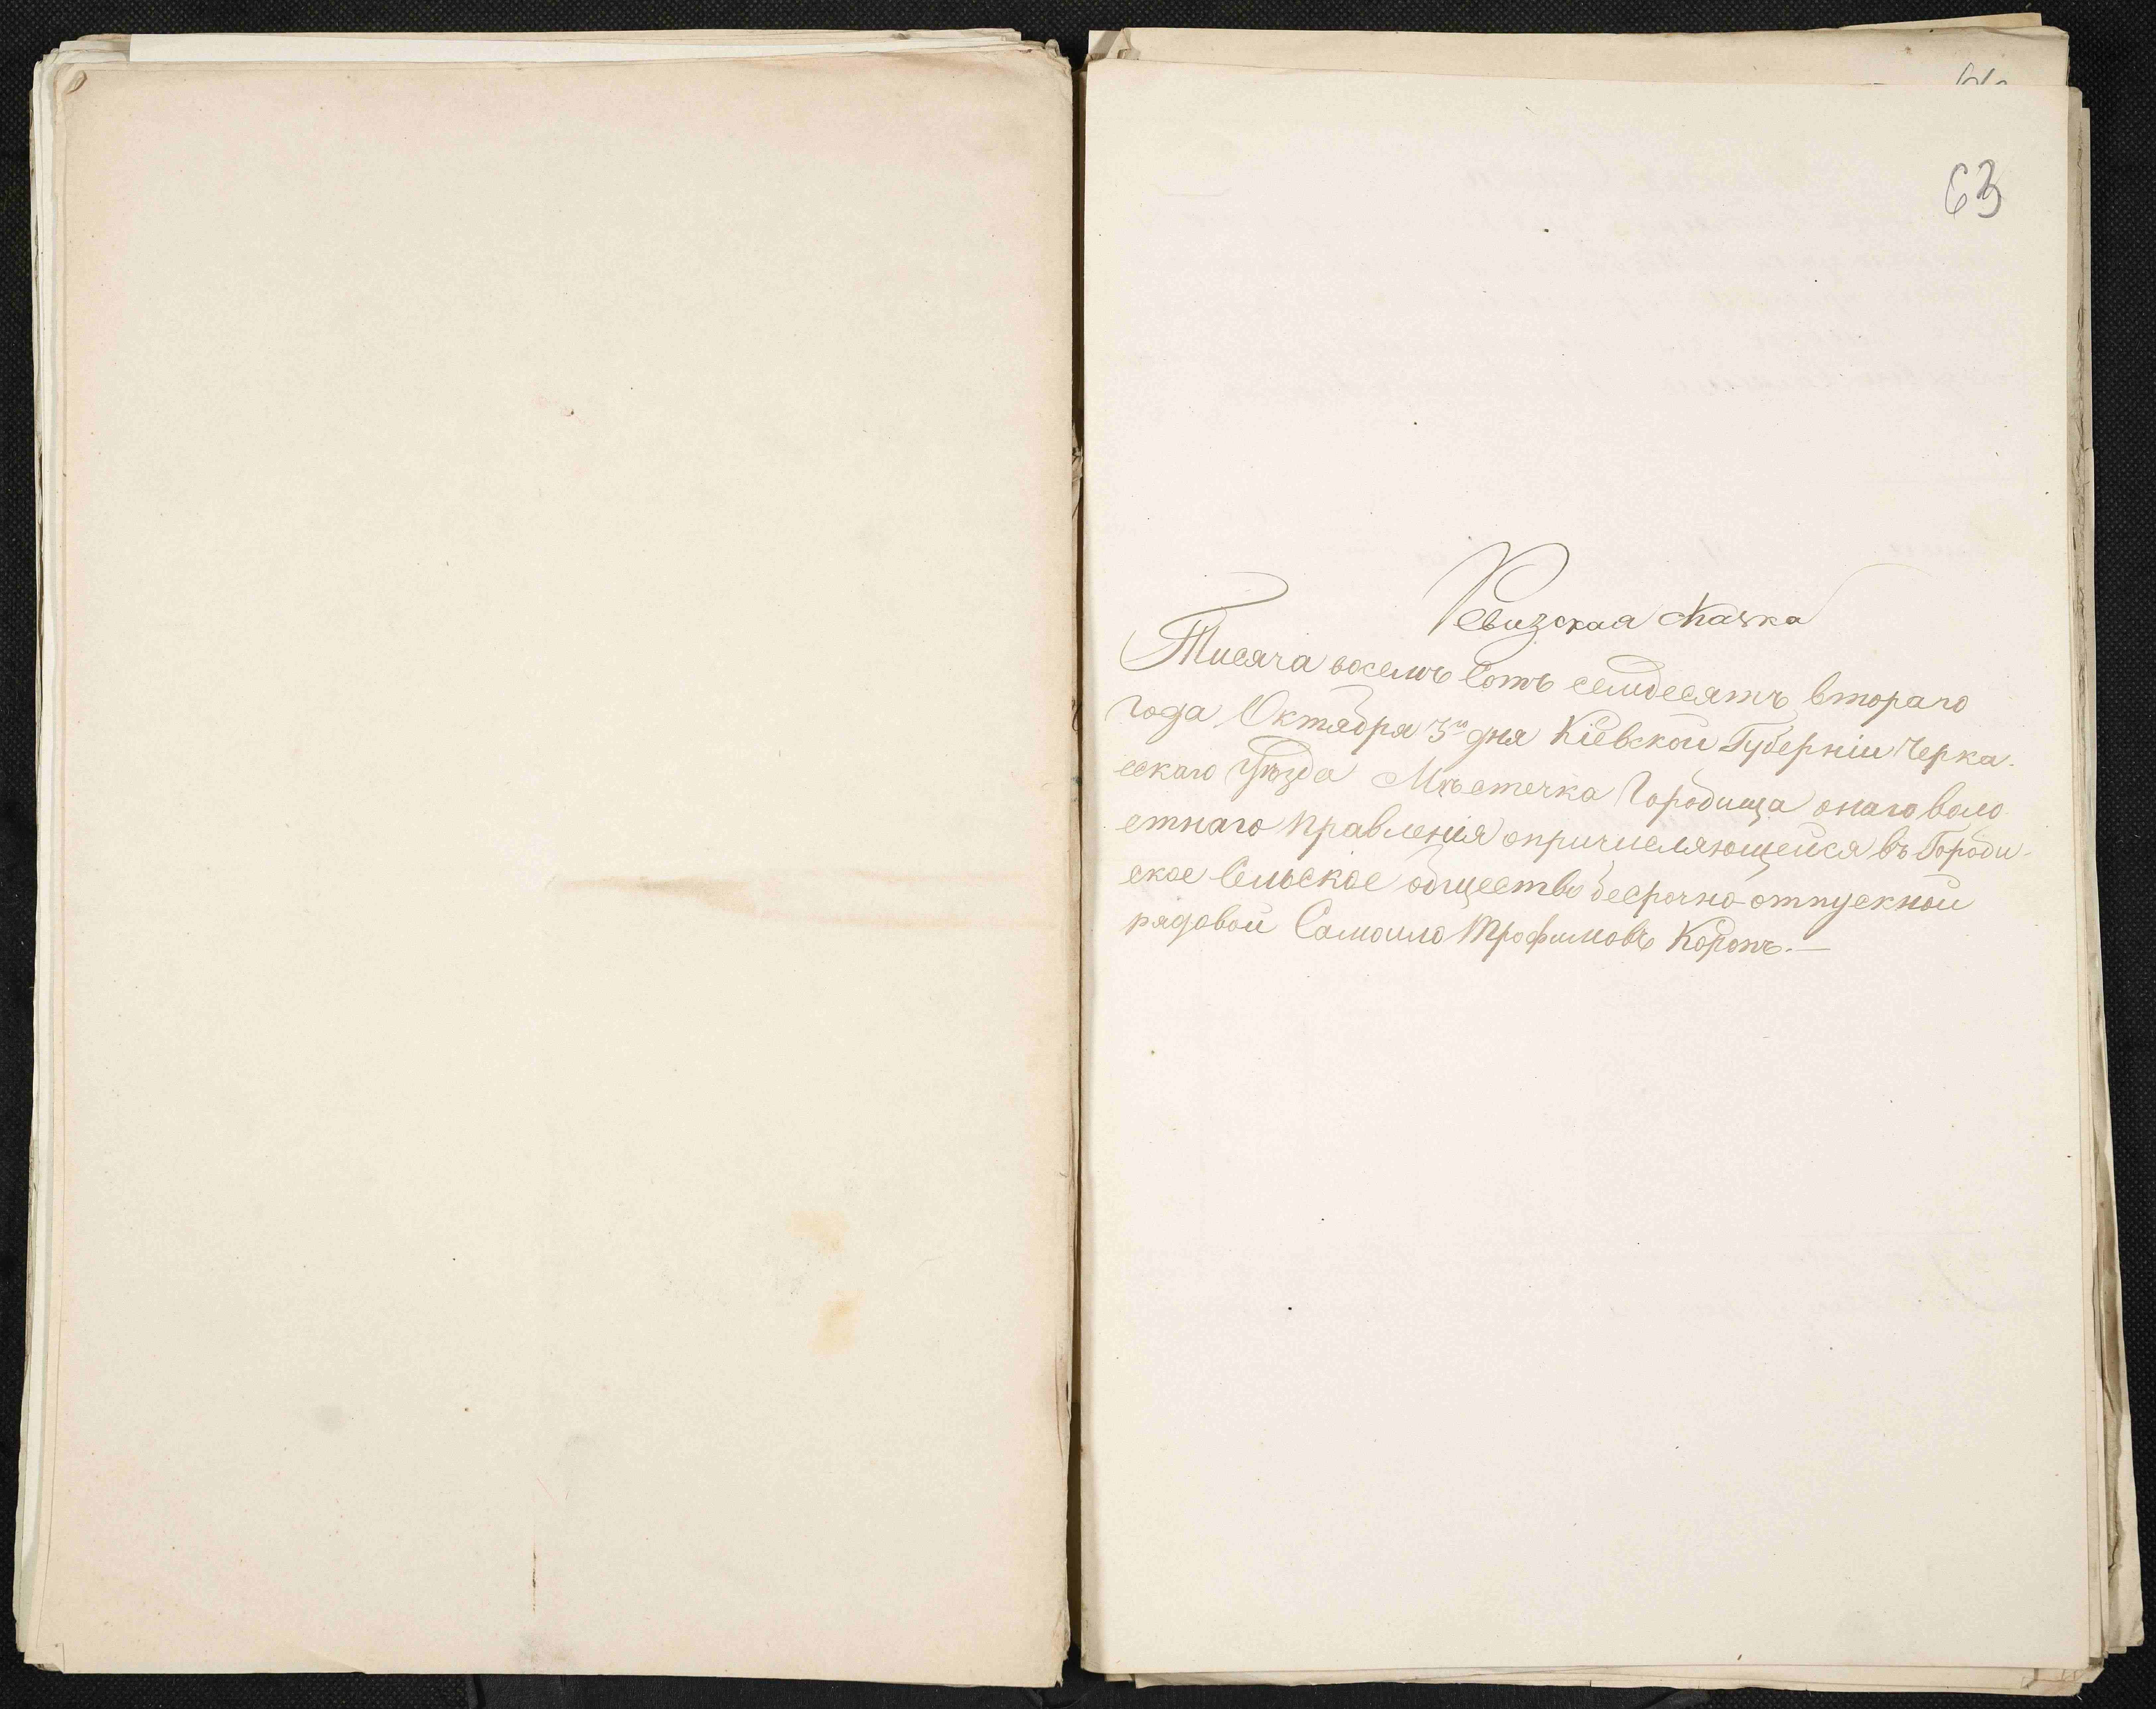 63
Ревизская скаска
Тисяча восемъ Сотъ семдесятъ втораго
года Октября 3го дня Кіевской Губерніи Черка-
скаго Уѣзда Мѣстечка Городища онаго воло
стнаго правленія опричисляющейся въ Городи-
ское Сельское общество бесрочно-отпускной
рядовой Самоило Трофимовъ